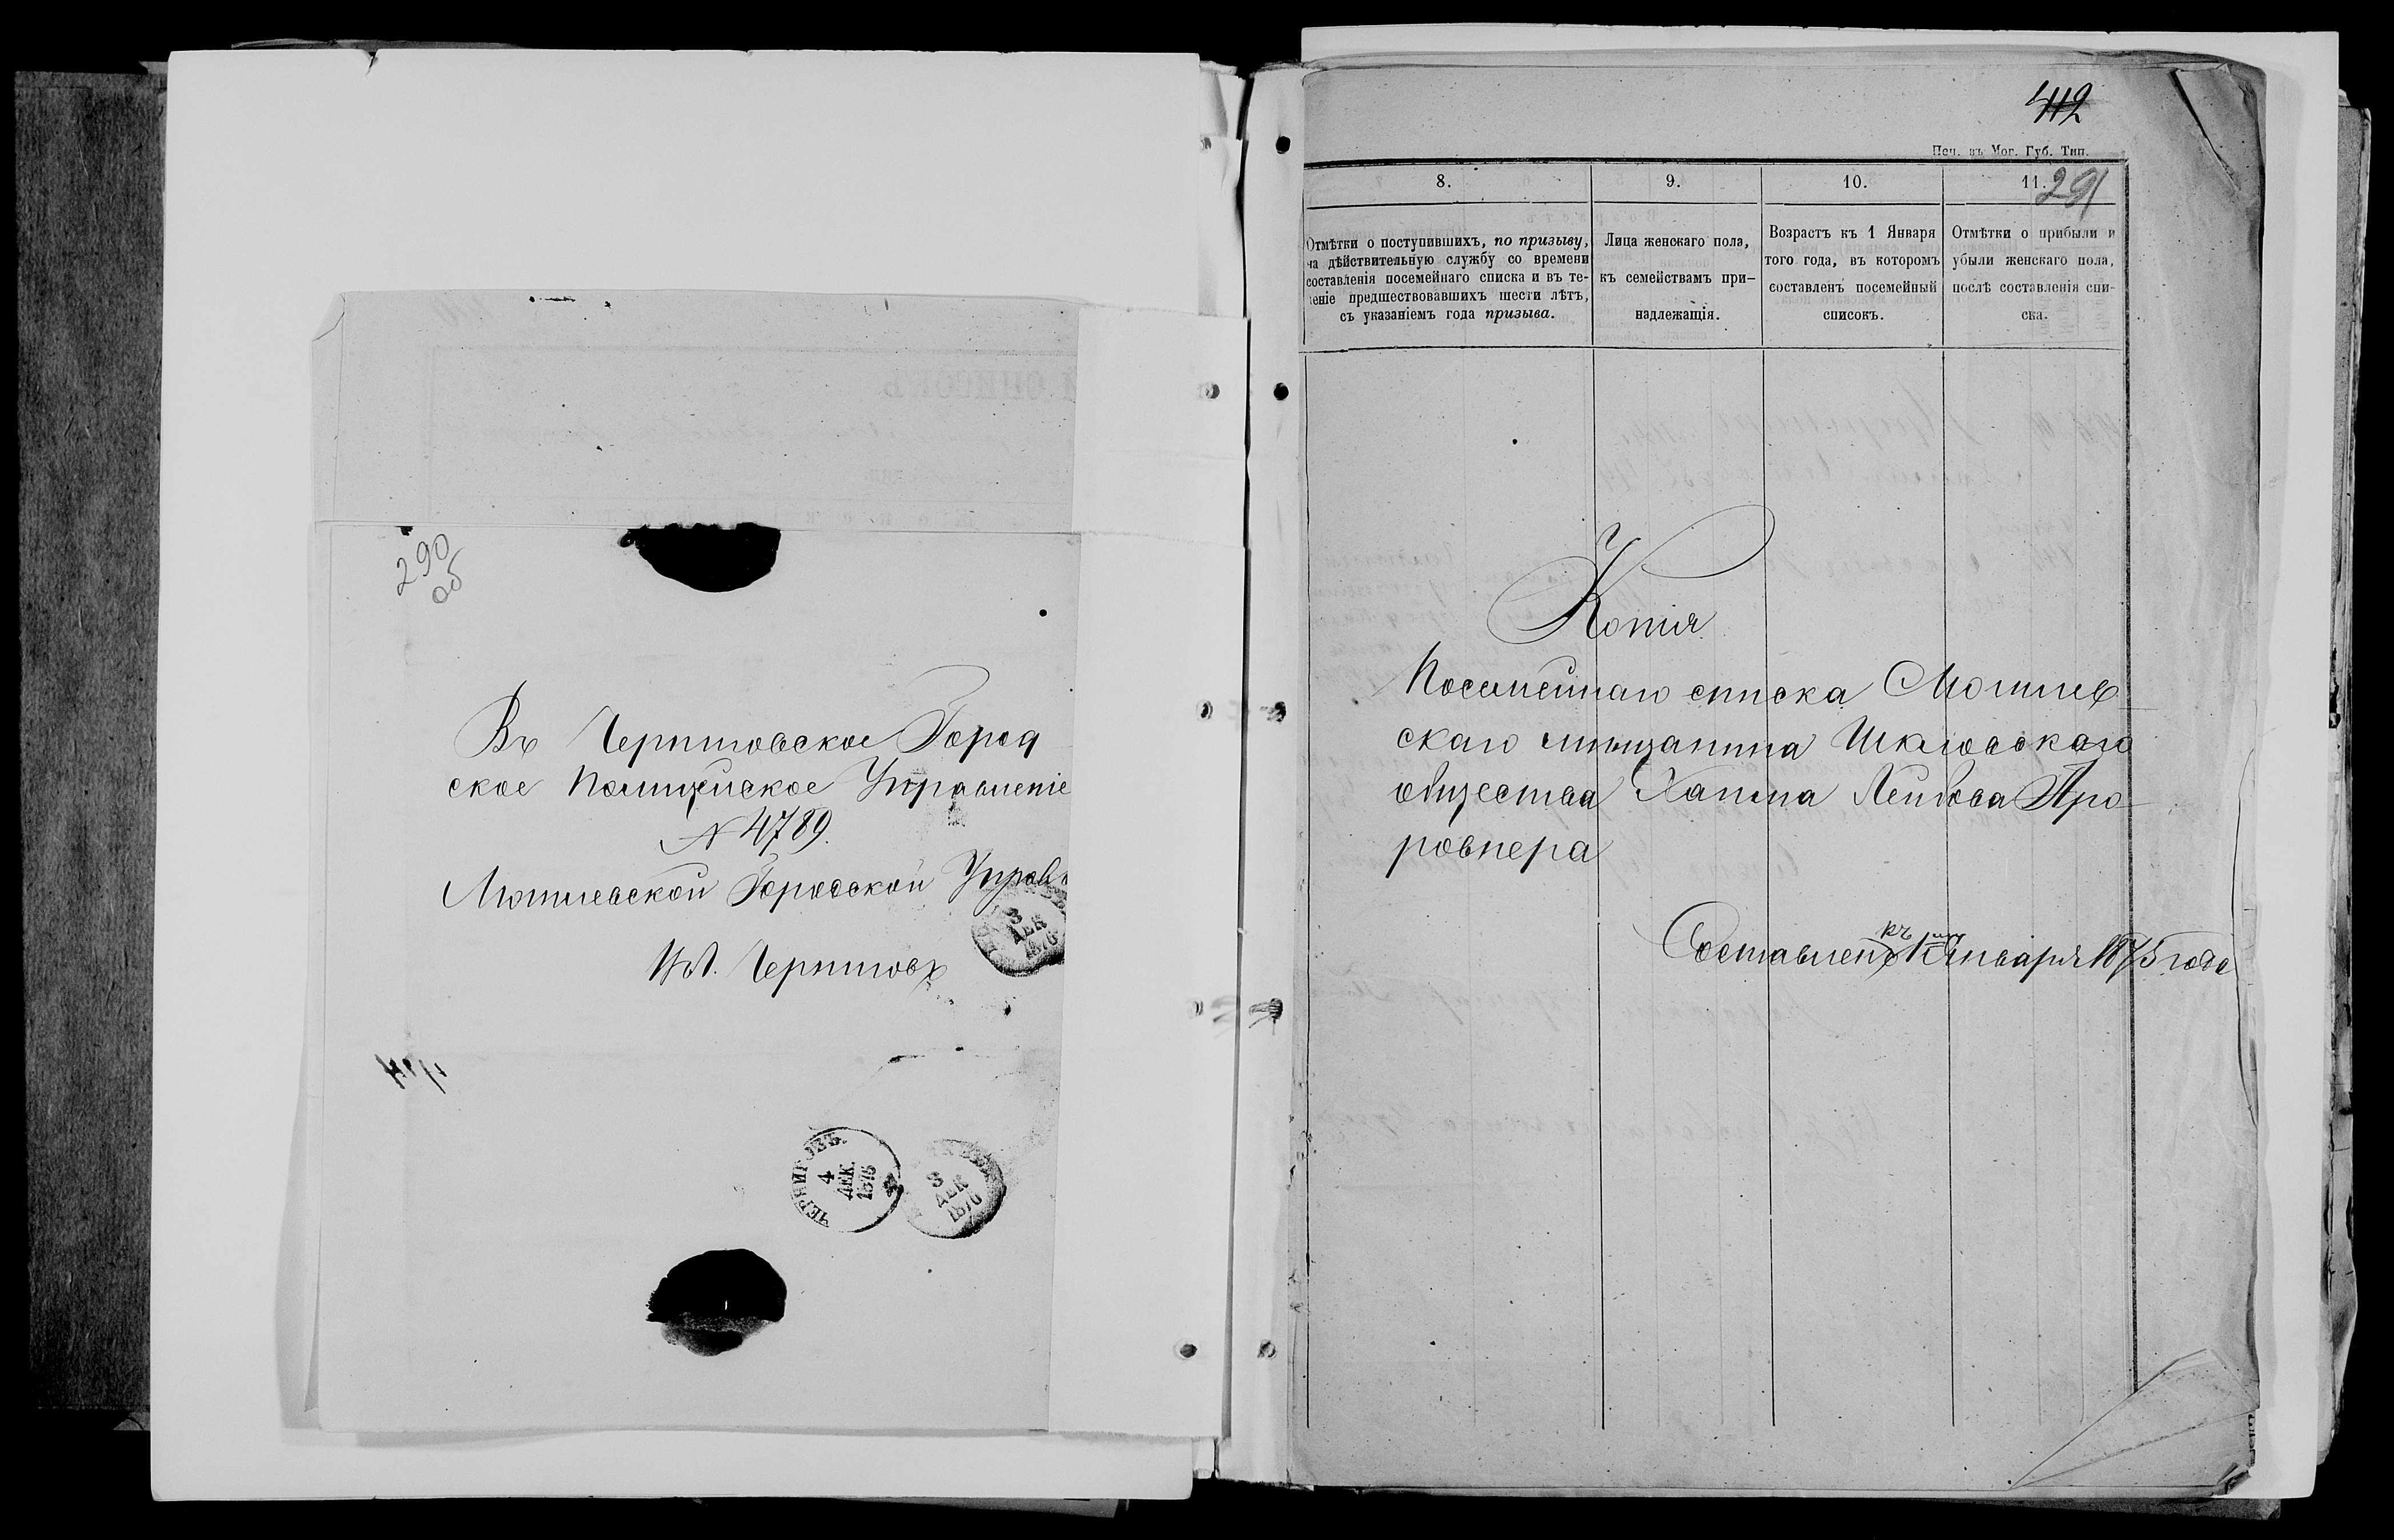 290
об
Въ Черниговское Город
ское Полицейское Управленіе
№ 4789.
Могилевской Городской Управы
Въ г. Черниговъ
3
ДЕК
1876
ЧЕРНИГОВЪ.
4
ДЕК.
1876
3
ДЕК
1876
412
Печ. въ Мог. Губ. Тип.
8. 9. 10. 11.
291
Отмѣтки о поступившихъ, по призыву,
на дѣйствительную службу со времени
составленія посемейнаго списка и въ те-
ченіе предшествовавшихъ шести лѣтъ,
съ указаніемъ года призыва.
Лица женскаго пола,
къ семействамъ при-
надлежащія.
Возрастъ къ 1 Января
того года, въ которомъ
составленъ посемейный
списокъ.
Отмѣтки о прибыли и
убыли женскаго пола,
послѣ составленія спи-
ска.
Копія
Посемейнаго списка Могилев
скаго мѣщанина Шкловскаго
общества Хаима Лейбова Про
ровнера
Составленъ къ 1 Января 1875 года